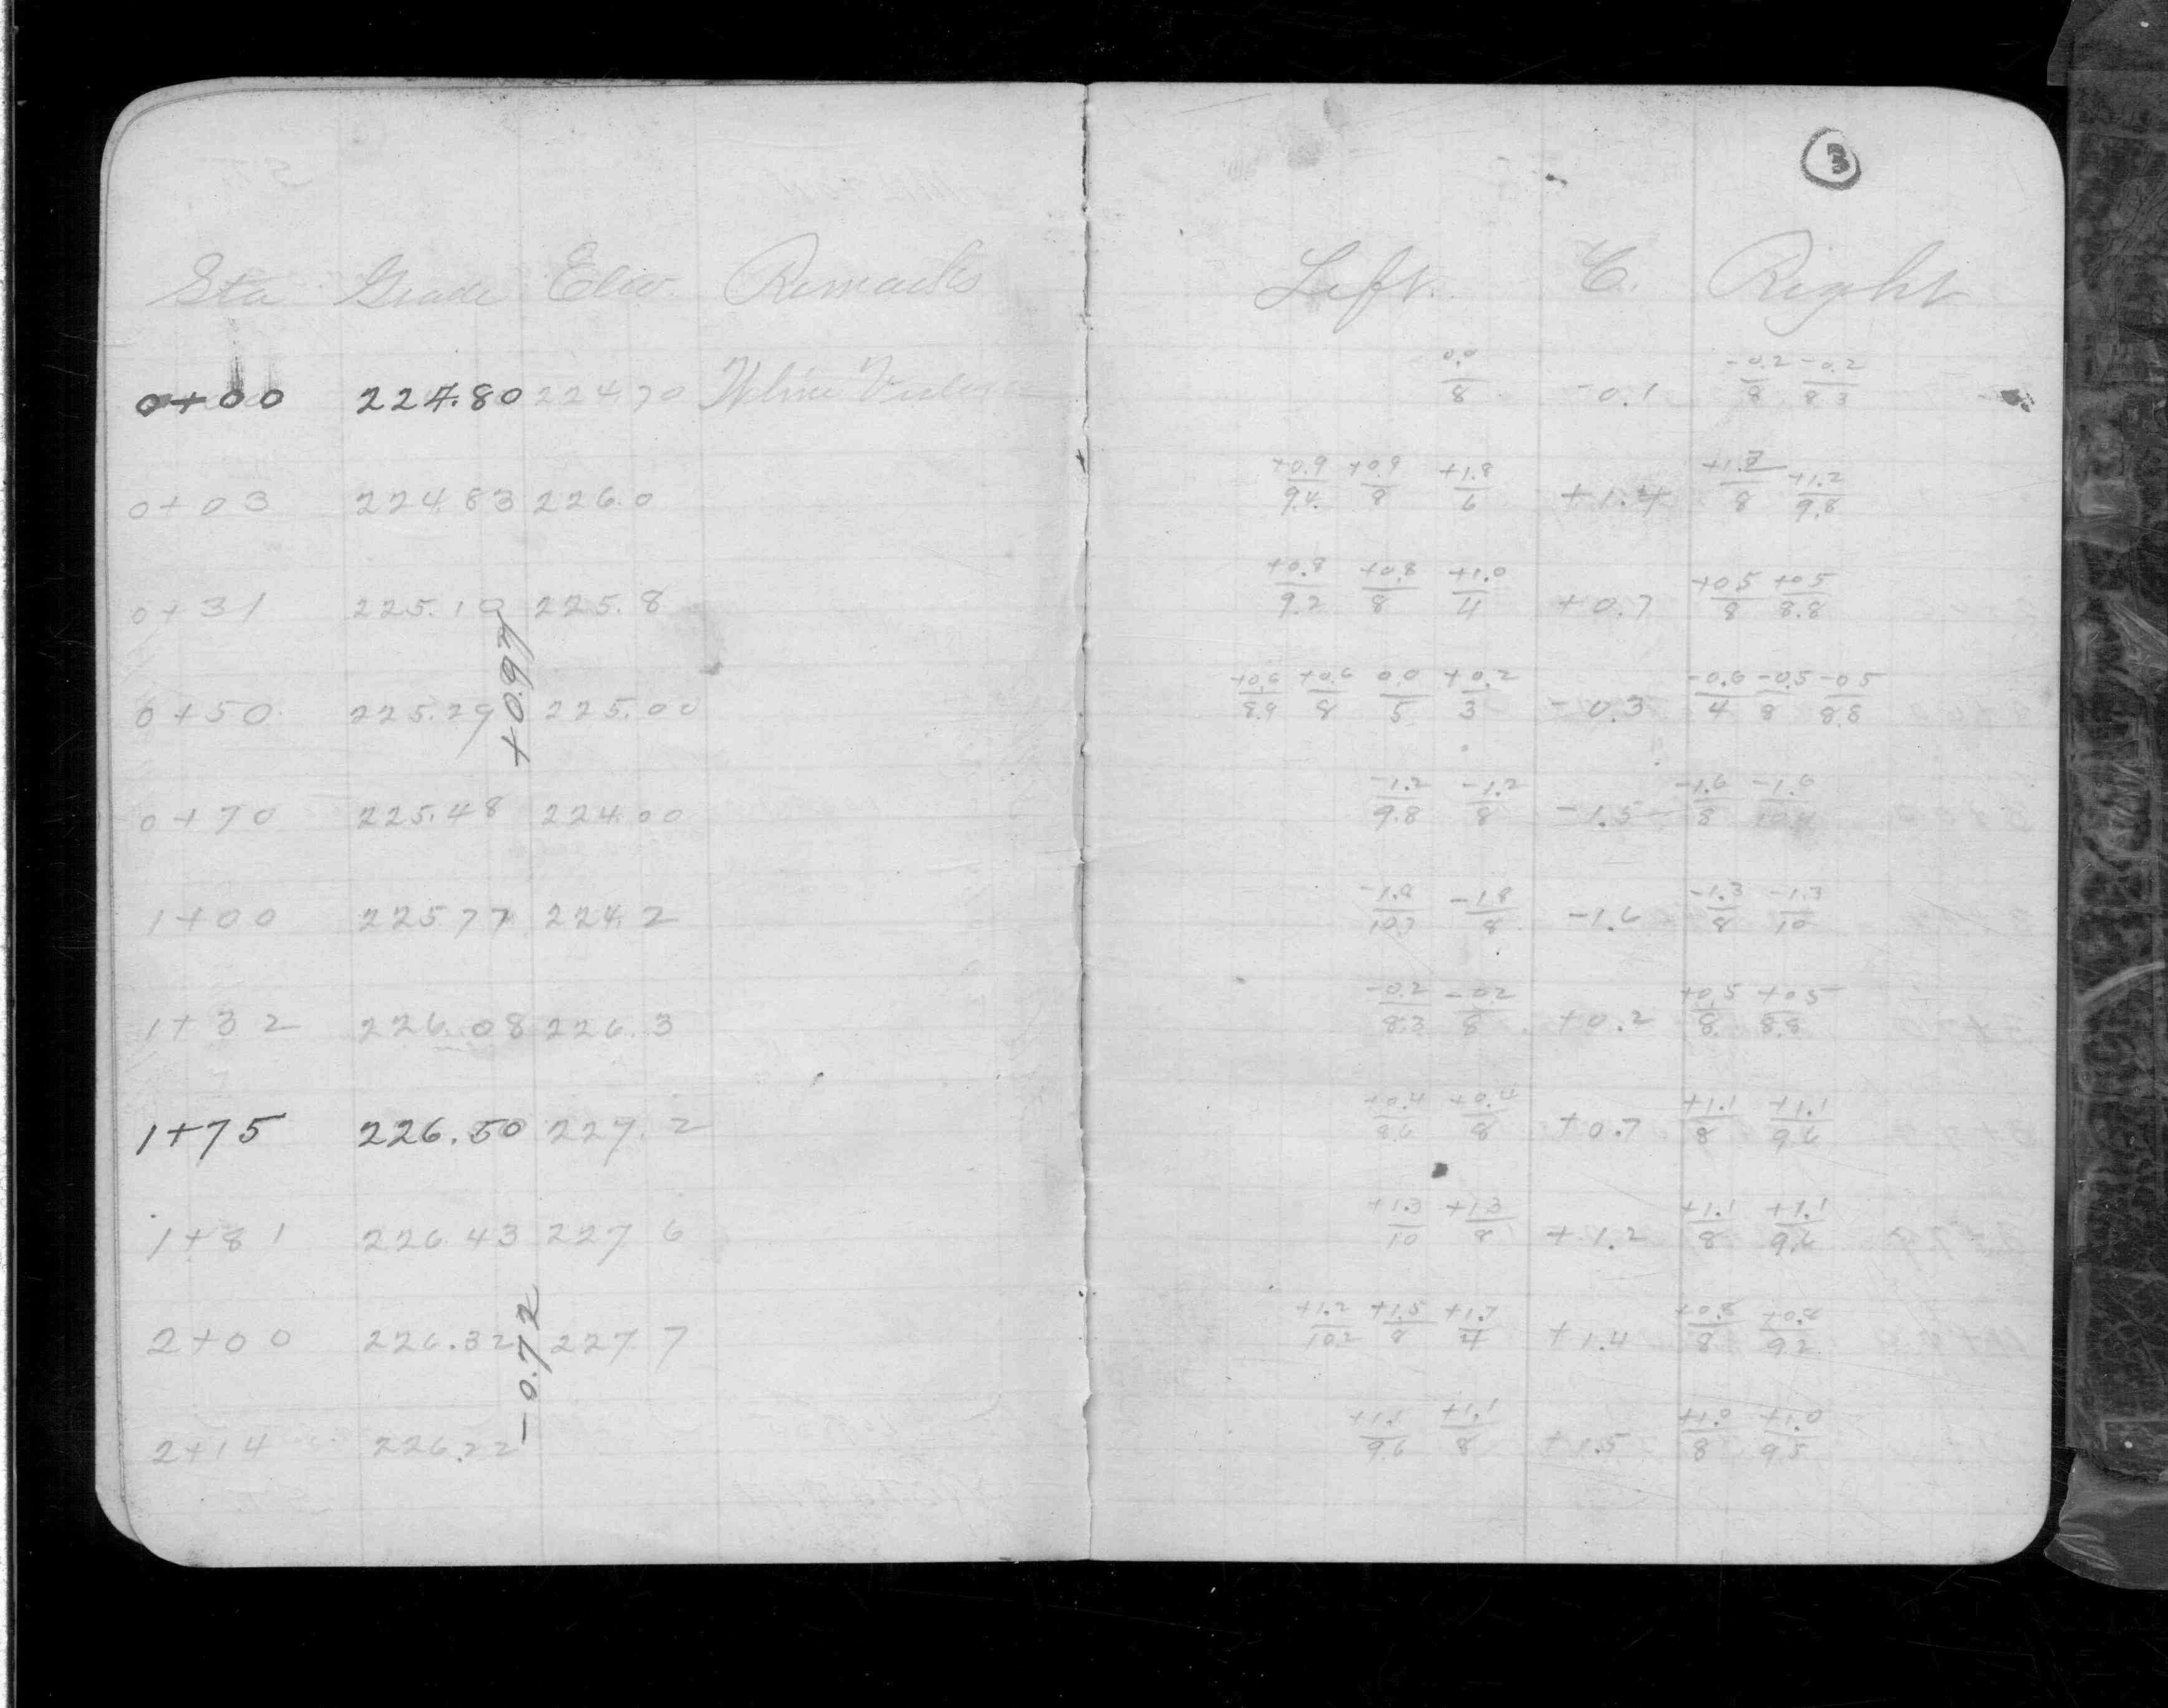 3
Sta Grade Elev. Remarks Left. C. Right
0+00 224.80 224.70 0.0/8 -0.1 -0.2/8 -0.2/8.3
0+03 224.83 226.0 +0.9/9.4 +0.9/8 +1.8/6 +1.4 /8 +1.2/9.8
0+31 225.10 225.8 +0.8/9.2 +0.8/8 +1.0/4 +0.7 +0.5/8 +0.5/8.8
+0.97
0+50 225.29 225.00 +0.6/8.9 +0.6/8 0.0/5 +0.2/3 -0.3 -0.6/4 -0.5/8 -0.5/8.8
0+70 225.48 224.00 -1.2/9.8 -1.2/8 -1.5 -1.6/8 -1.6/10.4
1+00 225.77 224.2 -1.8/10.7 -1.8/8 -1.6 -1.3/8 -1.3/10
1+32 226.08 226.3 -0.2/8.3 -0.2/8 +0.2 +0.5/8 +0.5/8.8
1+75 226.50 227.2 +0.4/8.6 +0.4/8 +0.7 +1.1/8 +1.1/9.6
1+81 226.43 227.6 +1.3/10 +1.3/8 +1.2 +1.1/8 +1.1/9.6
2+00 226.32 227.7 +1.2/10.2 +1.5/8 +1.7/4 +1.4 +0.8/8 +0.8/9.2
-0.72
2+14 226.22 +1.1/9.6 +1.1/8 +1.5 +1.0/8 +1.0/9.5